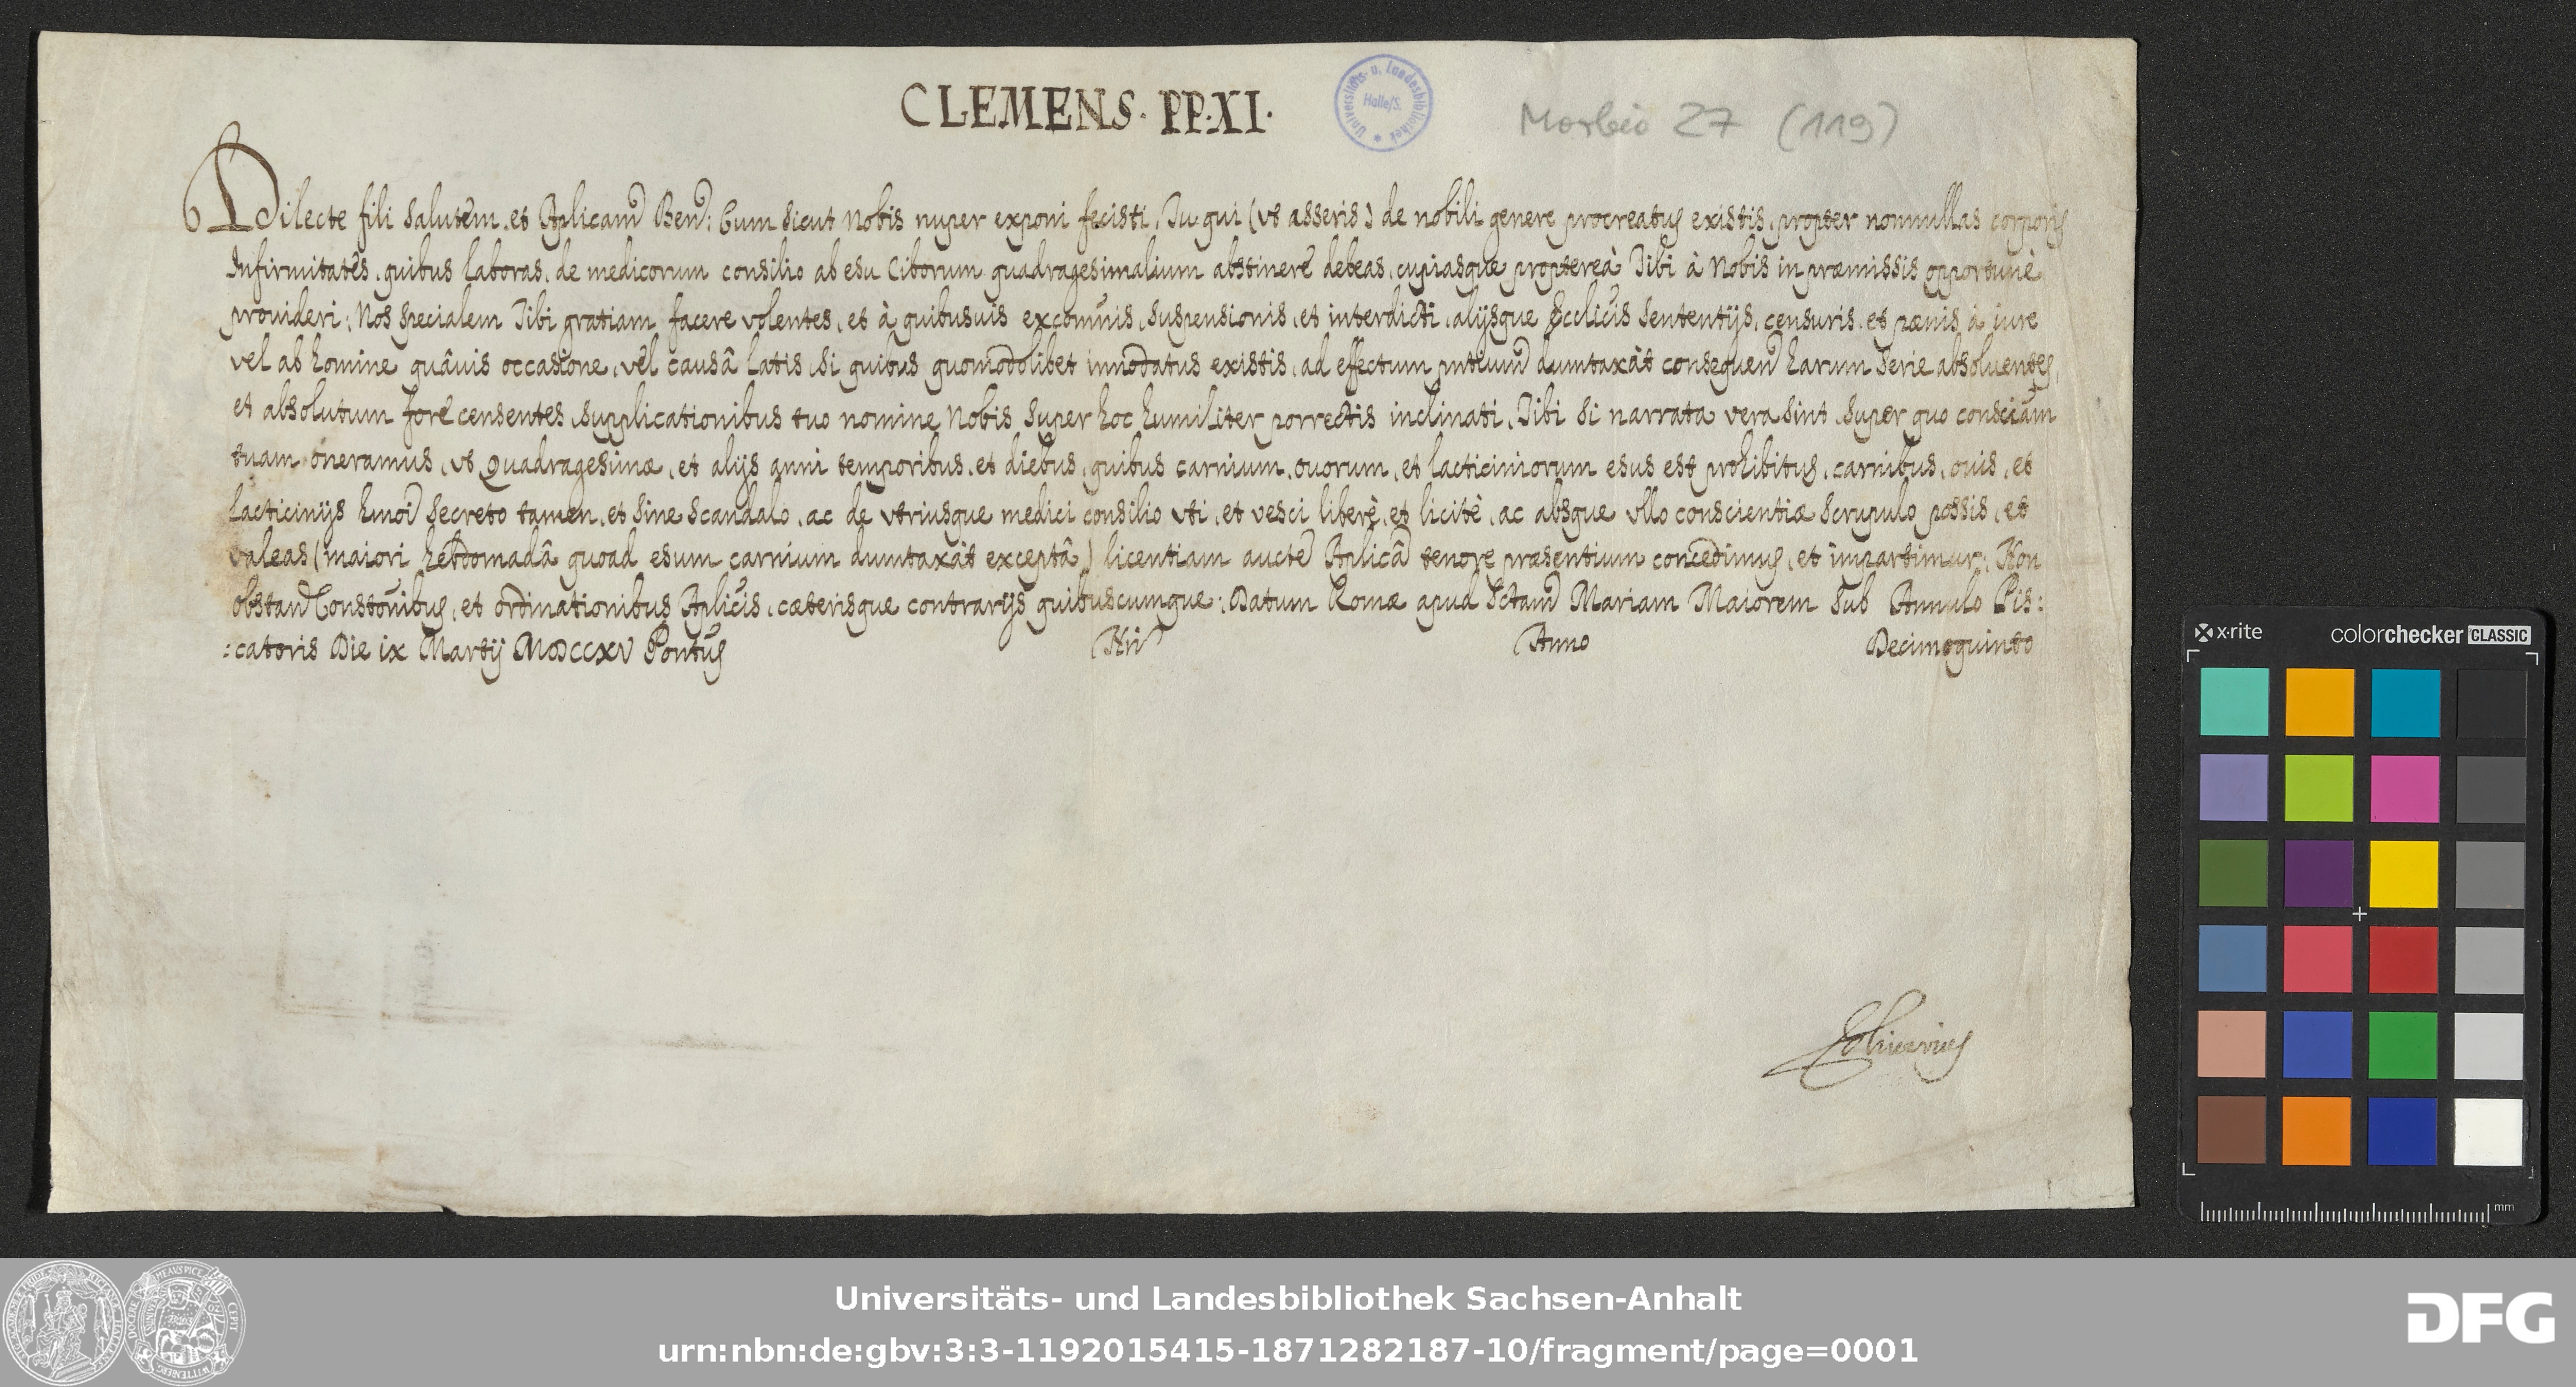 CLEMENS. PP. XI.
Universitäts- u. Landesbibliothek
Halle/S.
Morbio 27 (119)
Dilecte fili salutem, et Aplicam Ben: Cum sicut Nobis nuper exponi fecisti, Tu qui (vt asseris) de nobili genere procreatus existis, propter nonnullas corporis
Infirmitates, quibus laboras, de medicorum consilio ab esu Ciborum quadragesimalium abstinere debeas, cupiasque propterea Tibi à Nobis in præmissis opportunè
prouideri: Nos specialem Tibi gratiam facere volentes, et à quibusuis excomunis, suspensionis, et interdicti, alijsque Ecclicis sententijs, censuris, et pœnis à iure
vel ab homine quâuis occasione, vel causâ latis, si quibus quomodolibet innodatus existis, ad effectum pntium dumtaxàt consequen harum serie absoluentes,
et absolutum fore censentes, supplicationibus tuo nomine Nobis super hoc humiliter porrectis inclinati, Tibi si narrata vera sint, super quo consciam
tuam oneramus, vt Quadragesimæ, et alijs anni temporibus, et diebus, quibus carnium, ouorum, et lacticiniorum esus est prohibitus, carnibus, ouis, et
lacticinijs hmoi secreto tamen, et sine scandalo, ac de vtriusque medici consilio vti, et vesci liberè, et licitè, ac absque vllo conscientiæ scrupulo possis, et
valeas (maiori hebdomadâ quoad esum carnium dumtaxàt exceptâ) licentiam aucte Aplicâ tenore præsentium concedimus, et impartimur: Non
obstan Constonibus, et ordinationibus Aplicis, cæterisque contrarijs quibuscumque: Datum Romæ apud Sctam Mariam Maiorem sub Annulo Pis:
:catoris Die ix Martij MDCCXV Pontus Nri Anno Decimoquinto
x-rite
colorchecker CLASSIC
mm
Universitäts- und Landesbibliothek Sachsen-Anhalt
urn:nbn:de:gbv:3:3-1192015415-1871282187-10/fragment/page=0001
DFG